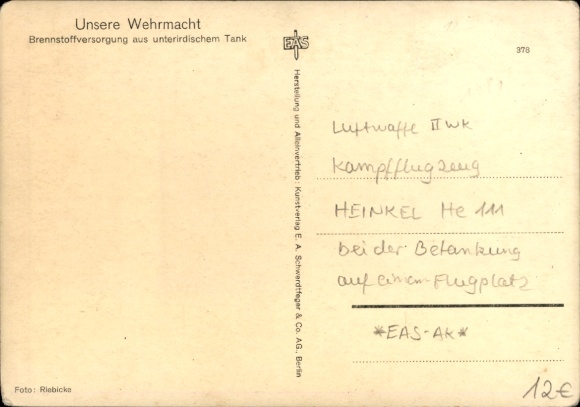 Unsere Wehrmacht
Brennstoffversorgung aus unterirdischem Tank
EAS
378
Herstellung und Alleinvertrieb: Kunstverlag E. A. Schwerdtfeger & Co. AG., Berlin
Luftwaffe II WK
Kampfflugzeug
HEINKEL He 111
bei der Betankung
auf einem Flugplatz
*EAS-AK*
Foto: Riebicke
12€